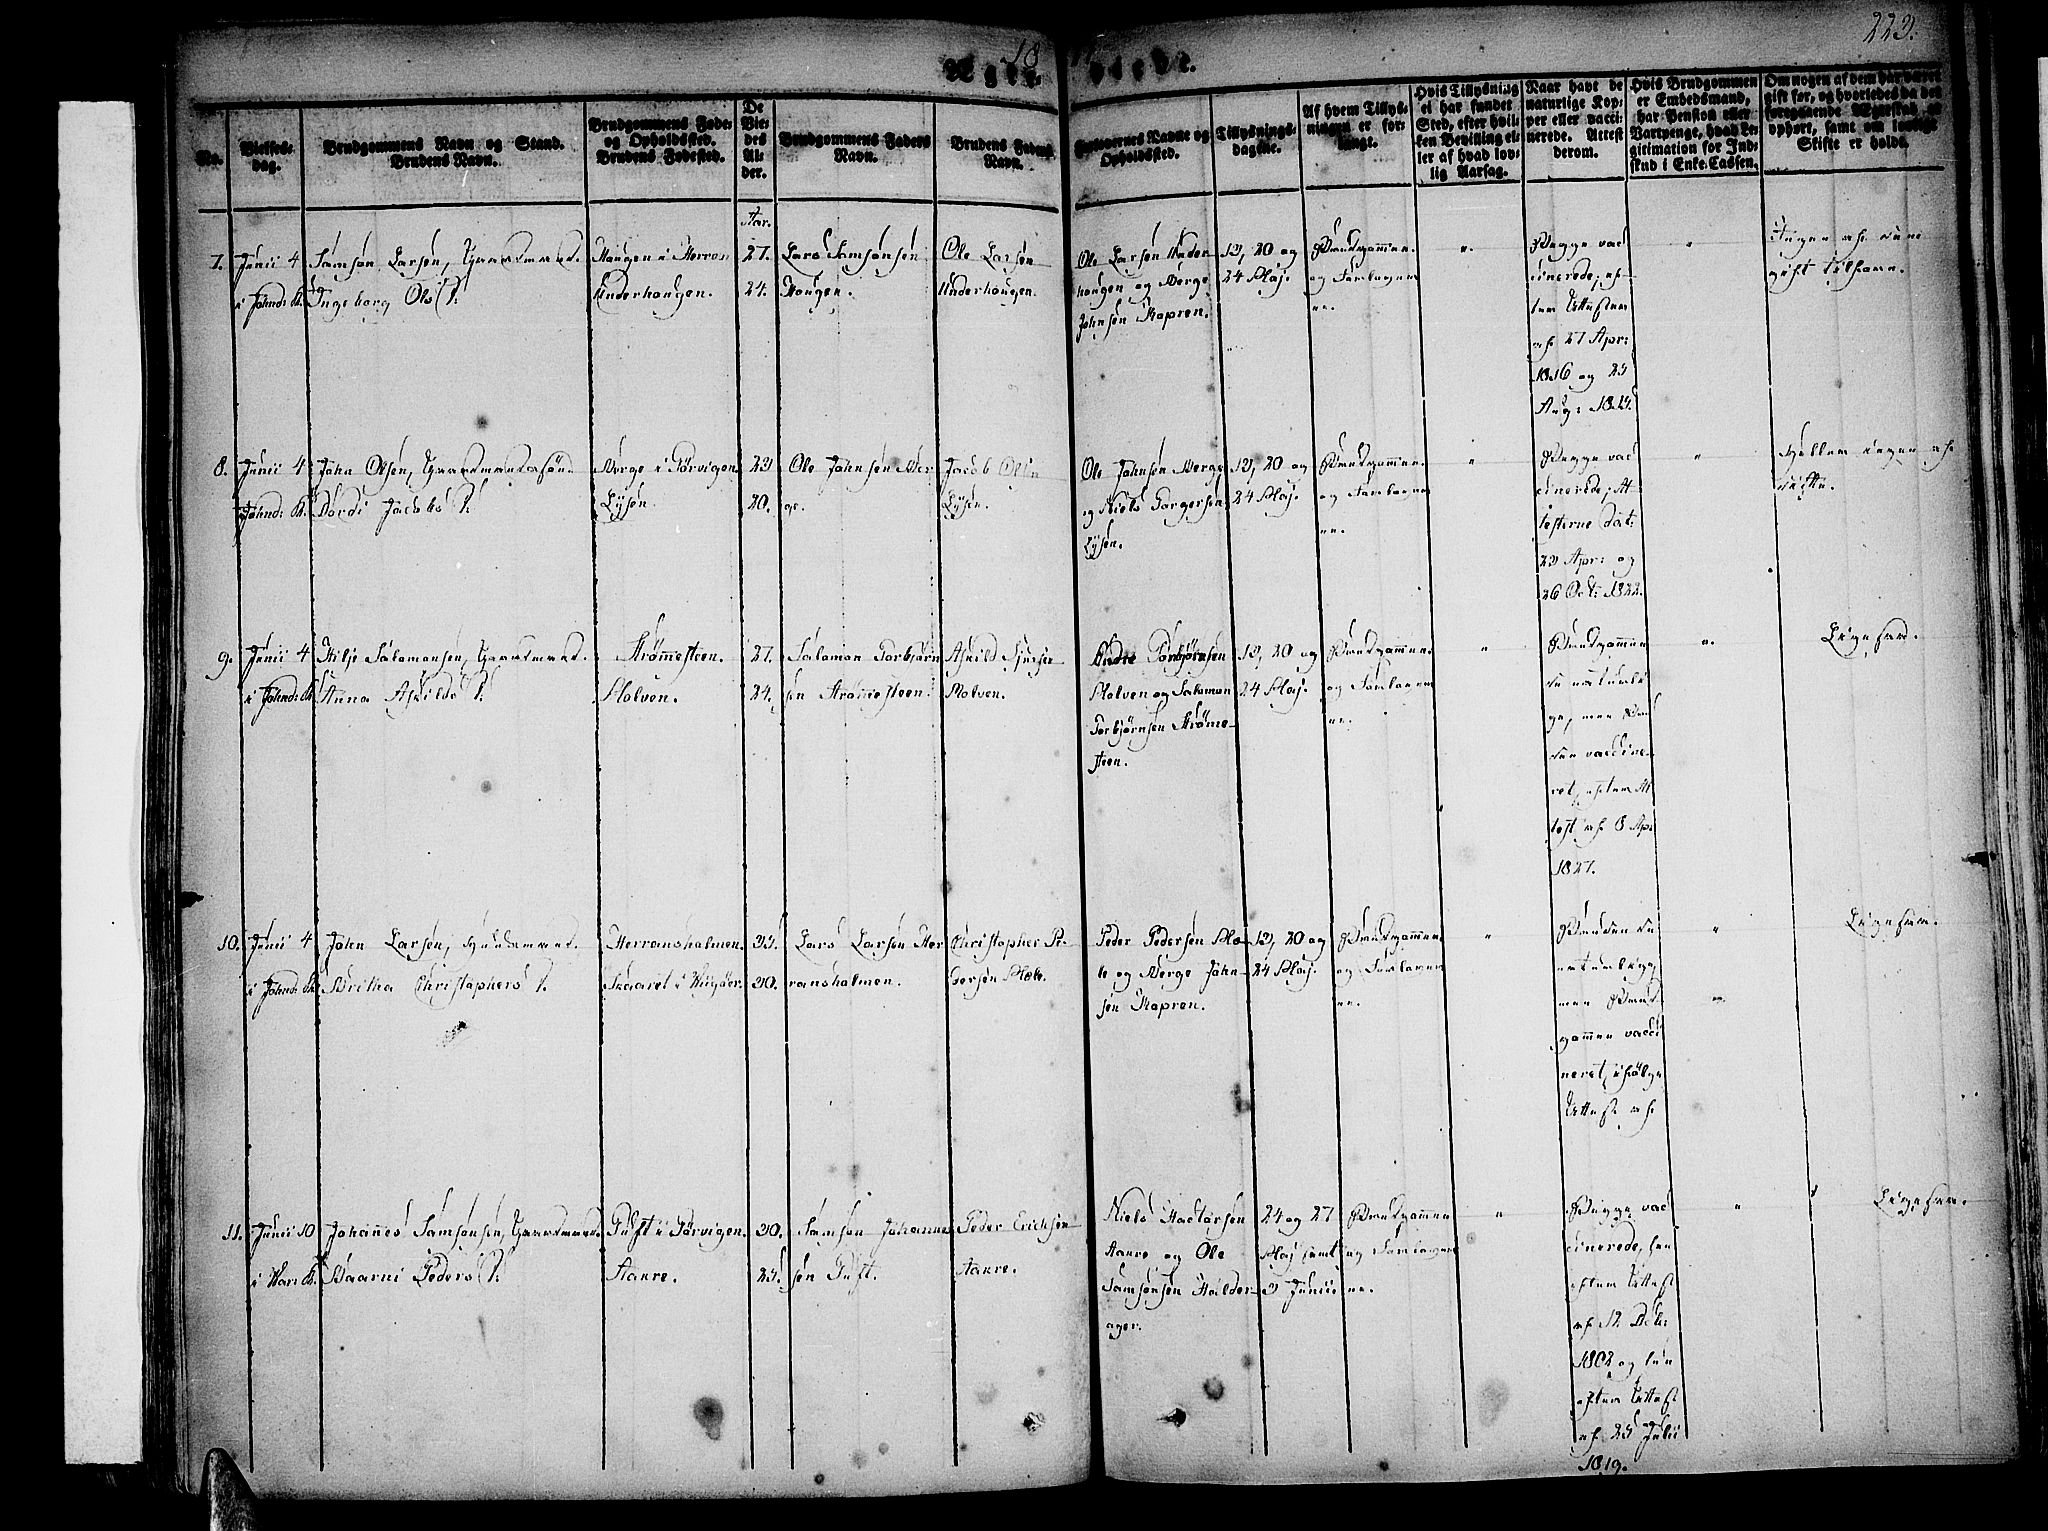 223.
No.
Vielses-
dag.
Brudgommens Navn og Stand.
Brudens Navn.
Brudgommens Føde-
og Opholdssted.
Brudens Fødested.
De
Vie-
des
Al-
der.
Brudgommens Faders
Navn.
Brudens Faders
Navn.
Forlovernes Navne og
Opholdssted.
Tillysnings-
dagene.
Af hvem Tillys-
ningen er for-
langt.
Hvis Tillysning
ei har fundet
Sted, efter hvil-
ken Bevilling el-
ler af hvad lov-
lig Aarsag.
Naar havt de
naturlige Kop-
per eller vacci-
nerede. Attest
derom.
Hvis Brudgommen
er Embedsmand,
har Pension eller
Vartpenge, hvad Le-
gitimation for Ind-
skud i Enke-Cassen.
Om nogen af dem har været
gift før, og hvorledes da det
foregaaende Ægteskab er
ophørt, samt om lovligt
Skifte er holdt.
Aar.
7.
Junii 4
i Johnd: K.
Samson Larsen, Gaardmand.
Ingeborg Ols D.
Haugen i Herron
Underhaugen.
27.
24.
Lars Samsonsen
Haugen.
Ole Larsen
Underhaugen.
Ole Larsen Under
haugen og Børge
Johnsen Kopren.
13, 20 og
24 Maj.
Brudgommen
og Forlovern
ne.
"
Begge vac
cinerede, ef-
ter Attester
af 27 Apr:
1816 og 25
Aug:
"
Ingen af dem
gift tilforn.
8.
Junii 4
i Johnd: K.
John Olsen, Gaardmandssøn.
Bordi Jacobs D.
Norge i Tørvigen
Lysen.
23
20.
Ole Johnsen Nor
ge.
Jacob Olsen
Lysen.
Ole Johnsen Norge
og Niels Torgersen
Lysen.
13, 20 og
24 Maj.
Brudgommen
og Forlovern
ne.
"
Begge vac
cinerede; At
testerne dat:
23 Apr: og
26 Oct: 1822.
"
Hellem ingen af
disse.
9.
Junii 4
i Johnd: K.
Hilje Salamonsen, Gaardmand.
Anna Askilds D.
Strømesteen.
Molven.
27.
24.
Salamon Torbjørn
sen Strømesteen.
Askild Sjursen
Molven.
Andre Torbjørnsen
Molven og Salamon
Torbjørnsen Strøme-
steen.
13, 20 og
24 Maj.
Brudgommen
og Forlovern
ne.
"
Brudgommen
de naturli
ge, men Bru
den vaccine-
ret, efter At
test af 8 Apr
1827.
"
Ligesaa.
10.
Junii 4
i Johnd: K.
John Larsen, Huusmand.
Britha Christophers D.
Herransholmen.
35.
30.
Lars Larsen Her
ransholmen.
Christopher Pe-
dersen Mæle.
Peder Pedersen Mæ
le og Børge John-
sen Kopren.
13, 20 og
24 Maj.
Brudgommen
og Forlovern
ne.
"
Bruden de
naturlige,
men Brud
gommen vacci
neret, ifølge
Attest af
"
Ligesaa.
11.
Junii 10
i Kar: K.
Johannes Samsonsen, Gaardmand.
Baarni Peders D.
Tuft i Tørvigen.
Aanre.
30.
25.
Samson Johannes
sen Tuft.
Peder Erichsen
Aanre.
Niels Hactorsen
Aanre og Ole
Samsonsen Halder-
ager.
24 og 27
Maj samt
3 Junii
Brudgommen
og Forlovern
ne.
"
Begge vac
cinerede, han
efter Attest
af 12 Dec:
1802 og hun
efter Attest
af 25 Julii
1819.
"
Ligesaa.